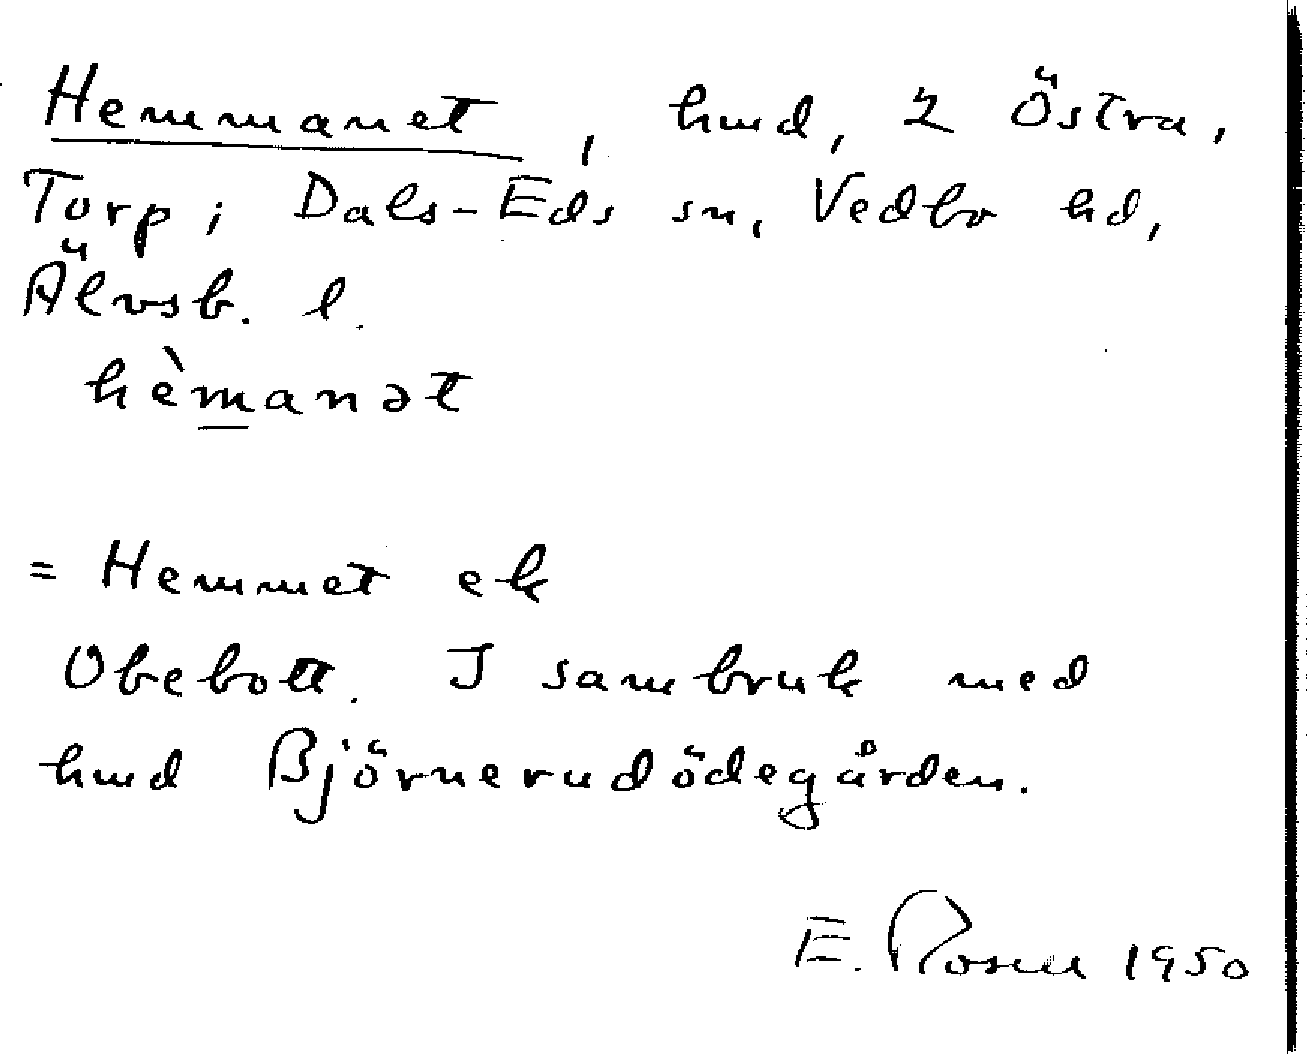 Hemmanet, hmd, 2 Östra,
Torp i Dals-Eds sn, Vedbo hd,
Älvsb. l.
hèmanət
= Hemmet ek
Obebott. I sambruk med
hmd Björnerudödegården.
E. Rosell 1950